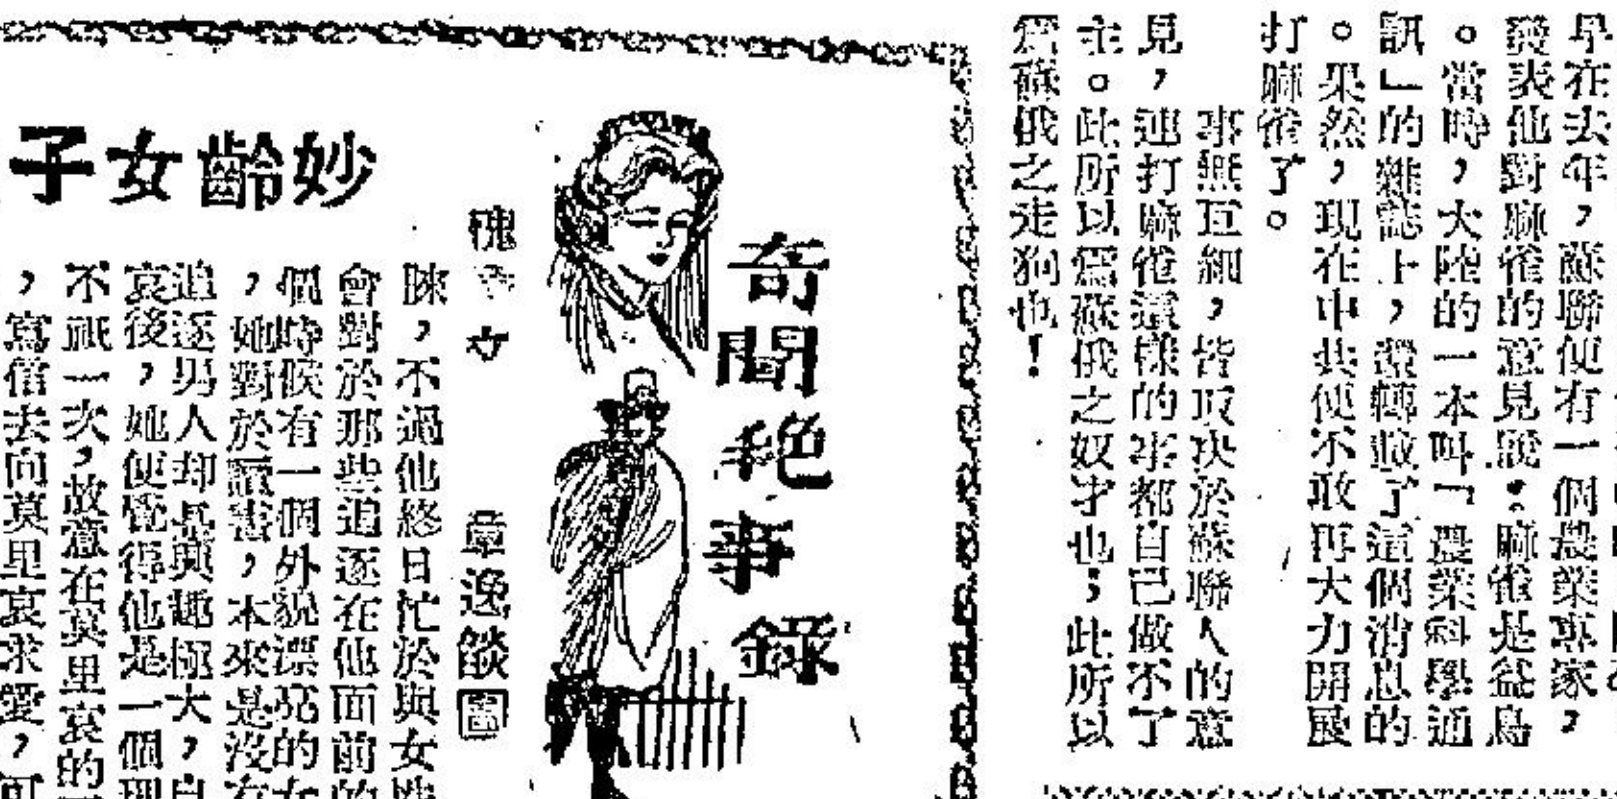 早在去年，蘇聯便有一個農業專家，
發表他對麻雀的意見說：麻雀是益鳥
。當時，大陸的一本叫「農業科學通
訊」的雜誌上，還轉載了這個消息的
。果然，現在中共便不敢再大力開展
打麻雀了。
事無巨細，皆取決於蘇聯人的意
見，連打麻雀這樣的事都自己做不了
主。此所以為蘇俄之奴才也；此所以
為蘇俄之走狗也！
奇聞艷事錄
槐 文
章逸
圖
妙齡女子
陳，不過他終日忙於與女
會對於那些追逐在他面前的
個時候有一個外貌漂亮的女
，她對於讀書，本來是沒有
追逐男人却是興趣極大，自
哀後，她便覺得他是一個理
不祇一次，故意在莫里哀的
，寫信去向莫里哀求愛，可